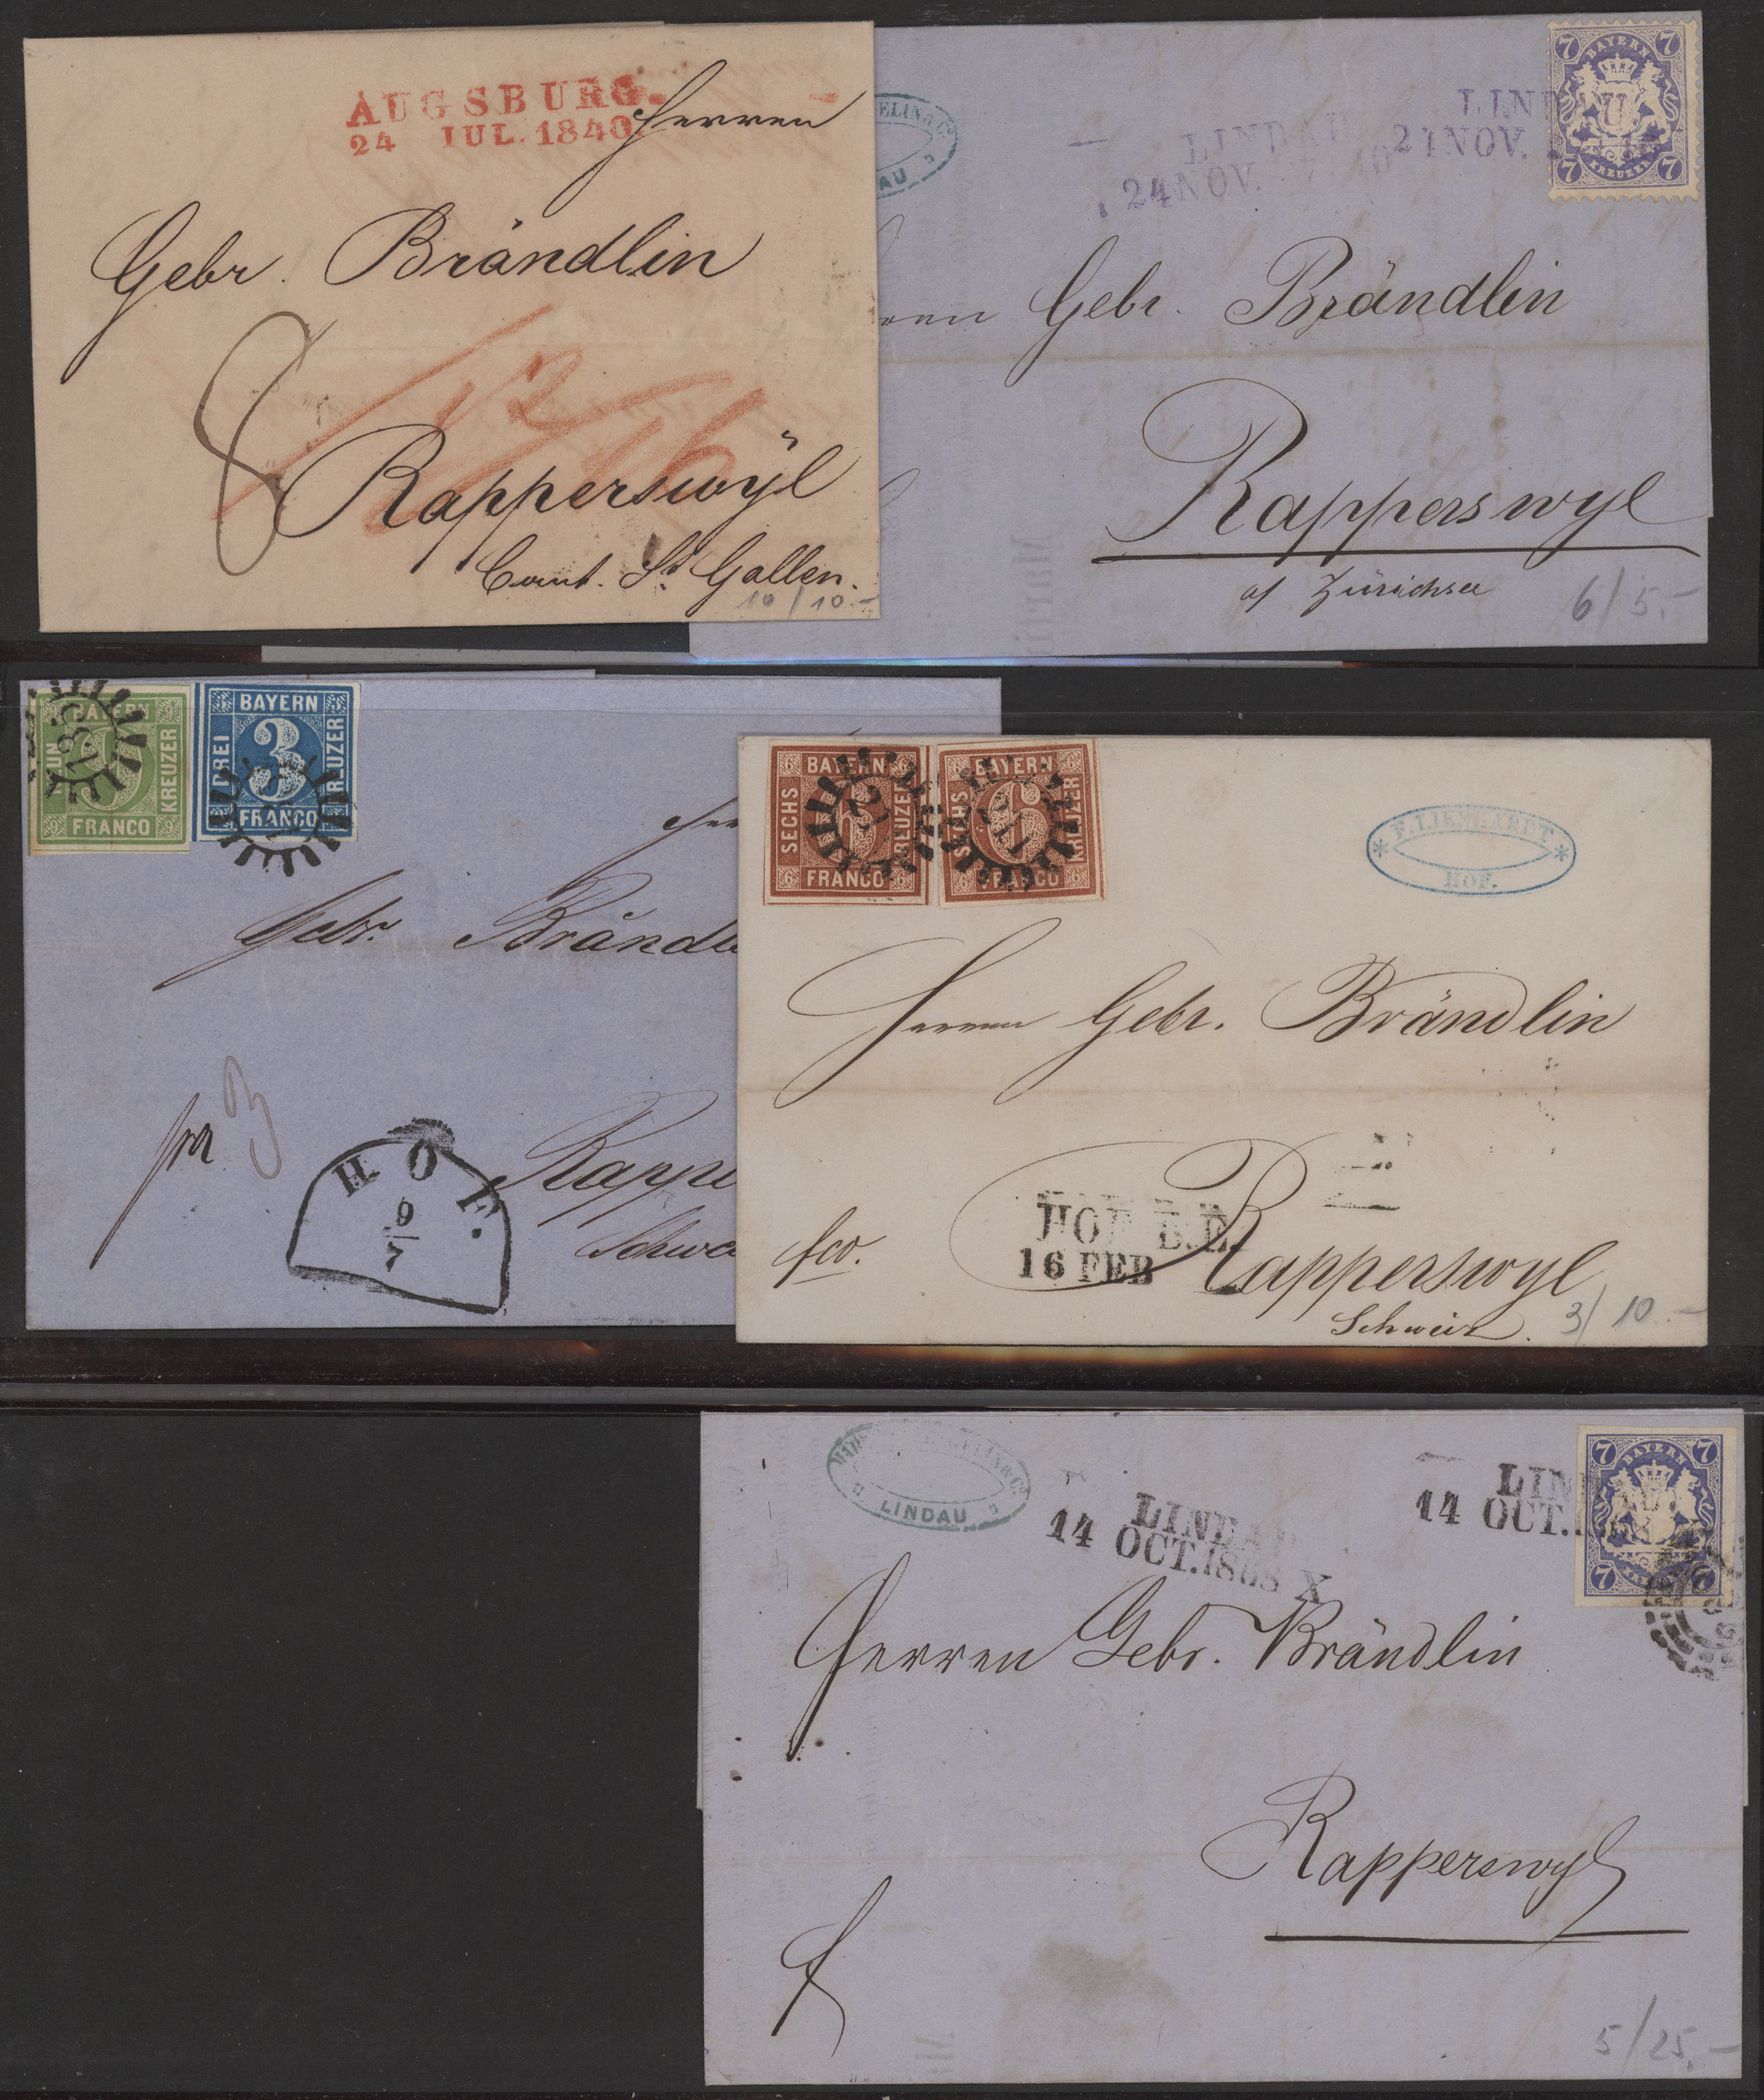 AUGSBURG.
24 JUL. 1840
Herren
Gebr. Brändlin
8
12
16
Rapperswÿl
Cant. St. Gallen.
10/10.-
ELIN & Co
AU
LINDAU
24 NOV.
LIN
NOV.
7 BAYERN 7
7 KREUZER 7
Gebr. Brändlin
Rapperswyl
a/ Zürichsee
6/5.-
BAYERN
NEUN
KREUZER
9 FRANCO 9
BAYERN
DREI
3
KREUZER
FRANCO
Gebr. Brändli
fco
Rappe
Schwe
HOF.
9
7
6 BAYERN 6
SECHS
6
KREUZER
6 FRANCO 6
BAYERN 6
SECHS
6
KREUZER
6 FRANCO 6
* F. LIENHARDT *
HOF.
Herren Gebr. Brändlin
HOF B.E.
16 FEB
fco.
Rapperswyl
Schweiz.
3/10.-
ELIN & Co
LINDAU
LINDAU
14 OCT. 1868 X
LIN
14 OCT.
7 BAYERN 7
7 7
Herren Gebr. Brändlin
Rapperswyl
f
5/25.-